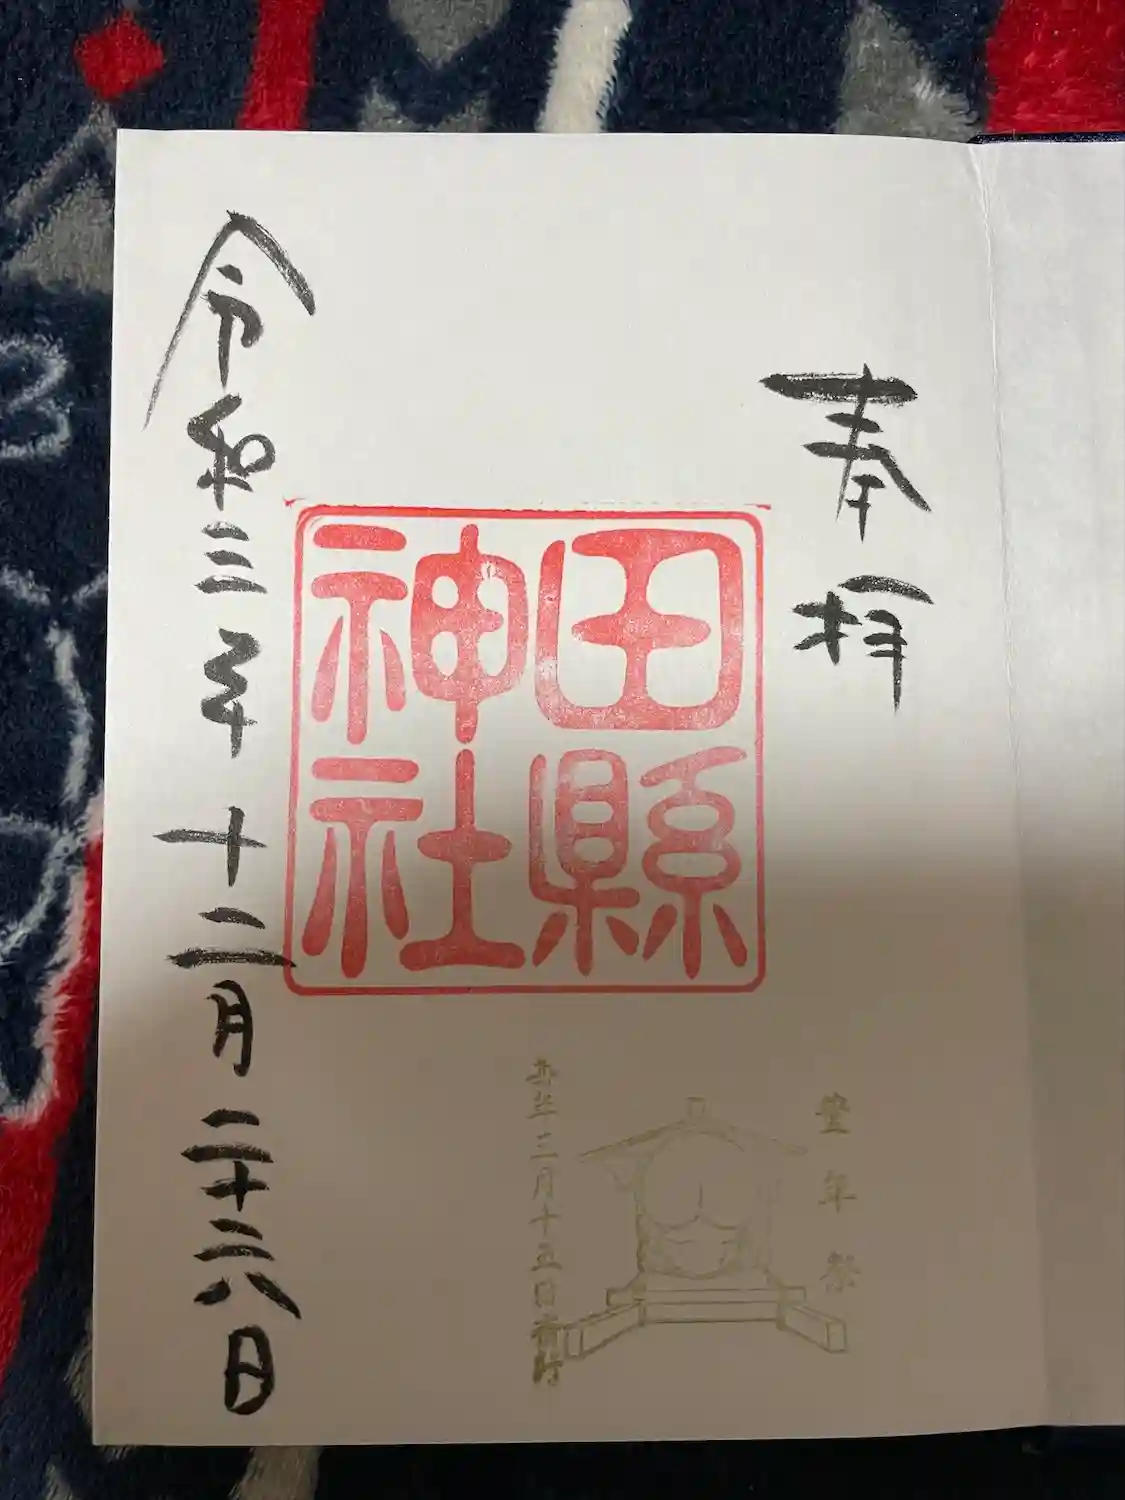 奉拝
田縣
神社
豊年祭
毎年三月十五日斎行
令和三年十二月二十六日